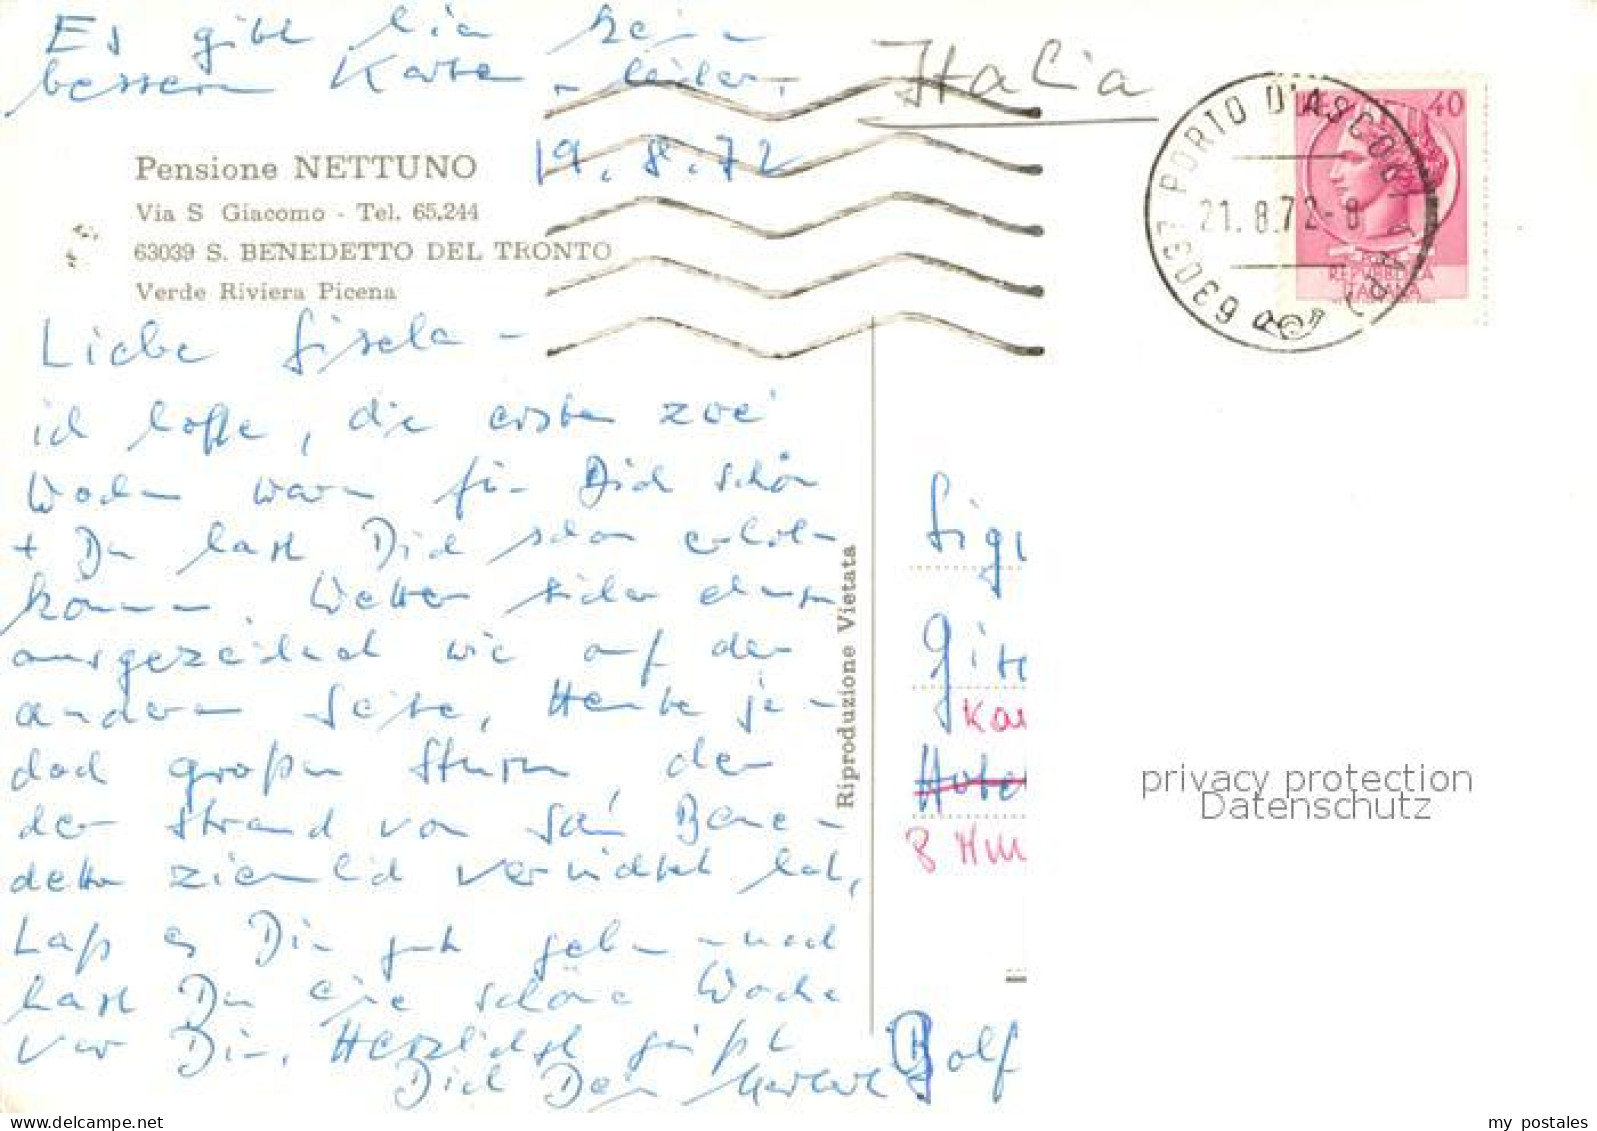 Es gibt hier keine
bessere Karte - leider -
Italia
19.8.72
Pensione NETTUNO
Via S Giacomo - Tel. 65.244
63039 S. BENEDETTO DEL TRONTO
Verde Riviera Picena
63037 PORTO D'ASCOLI
21.8.72-8
40
POSTE
REPUBBLICA
ITALIANA
Liebe Gisela -
ich hoffe, die ersten zwei
Wochen waren für Dich schön
+ Du hast Dich schon erholen
können. Wetter bisher ebenso
ausgezeichnet wie auf der
anderen Seite, Heute je-
doch großer Sturm, der
den Strand von San Bene-
detto ziemlich vernichtet hat,
Laß es Dir gut gehen - noch
hast Du eine schöne Woche
vor Dir. Herzlichst grüßt
Dich Dein
Riproduzione Vietata
Sig
Gise
Kar
Hote
8 Mün
Golf
privacy protection
Datenschutz
my postales